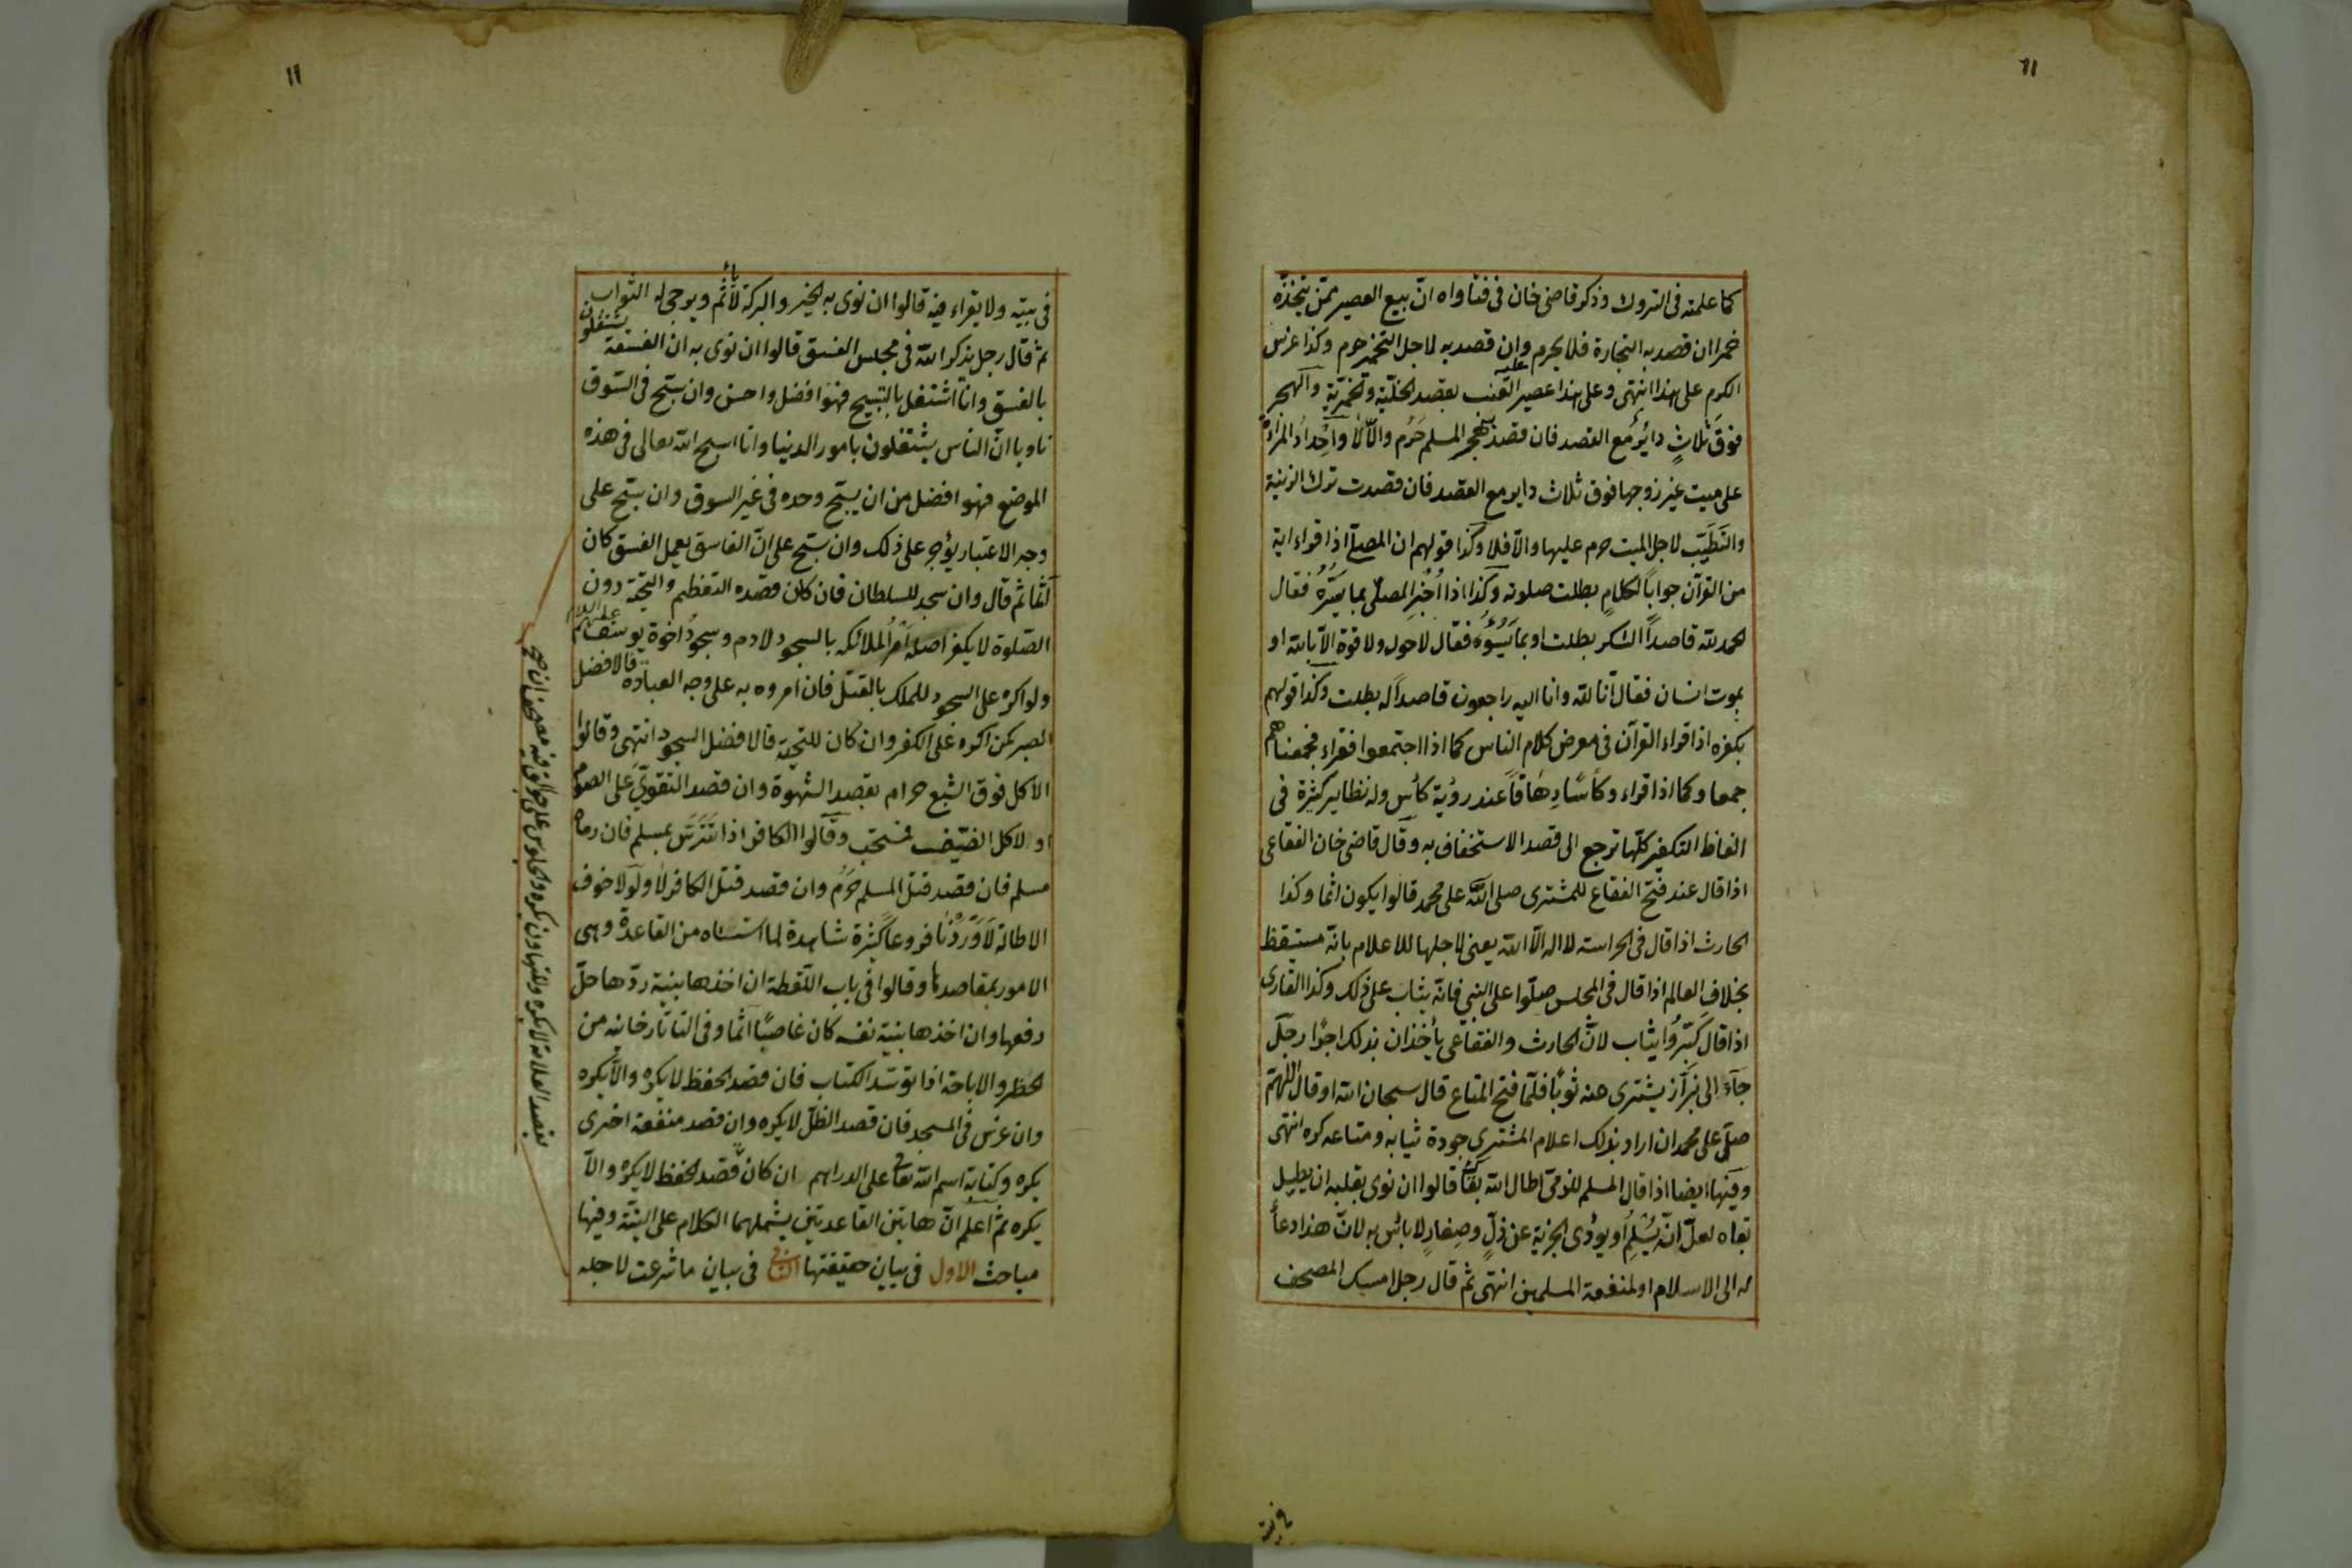 ١١
كما علمته فى التروك وذكر قاضى خان فى فتاواه ان بيع العصير ممن يتخذه
خمرا ان قصد به التجارة فلا يحرم وان قصد به لاجل التخمير حرم وكذا غرس
الكرم على هذا انتهى وعلى هذا عصير العنب بقصد الخلية والخمرية والهجر
فوق ثلاث دائر مع القصد فان قصد هجر المسلم حرم والا لا واحداد المراة
على ميت غير زوجها فوق ثلاث داير مع القصد فان قصدت ترك الزينة
والتطيب لاجل الميت حرم عليها والا فلا وكذا قولهم ان المصلى اذا قراء اية
من القرآن جوابا لكلام بطلت صلوته وكذا اذا اخبر المصلى بما يسره فقال
الحمد لله قاصدا الشكر بطلت او بما يسوءه فقال لا حول ولا قوة الا بالله او
بموت انسان فقال انا لله وانا اليه راجعون قاصدا له بطلت وكذا قولهم
بكفره اذا قراء القرآن فى معرض كلام الناس كما اذا اجتمعوا فقراء فجمعناهم
جمعا وكما اذا قراء وكأسا دهاقا عند رؤية كأس وله نظاير كثيرة فى
الفاظ التكفير كلها ترجع الى قصد الاستخفاف به وقال قاضى خان الفقاعى
اذا قال عند فتح الفقاع للمشترى صلى الله على محمد قالوا يكون اثما وكذا
الحارث اذا قال فى الحراسة لا اله الا الله يعنى لاجلها للاعلام بانه مستيقظ
بخلاف العالم اذا قال فى المجلس صلوا على النبى فانه يثاب على ذلك وكذا الغازى
اذا قال كبروا يثاب لان الحارث والفقاعى يأخذان بذلك اجرا رجل
جاء الى بزاز يشترى منه ثوبا فلما فتح المتاع قال سبحان الله او قال اللهم
صل على محمد ان اراد بذلك اعلام المشترى جودة ثيابه ومتاعه كره انتهى
وفيها ايضا اذا قال المسلم للذمى اطال الله بقاك قالوا ان نوى بقلبه ان يطيل
بقاه لعل انه يسلم او يؤدى الجزية عن ذل وصغار لا بأس به لان هذا دعاء
له الى الاسلام او لمنفعة المسلمين انتهى ثم قال رجل امسك المصحف
فى بيته
١١
فى بيته ولا يقراء فيه قالوا ان نوى به الخير والبركة لا يأثم ويرجى له الثواب
ثم قال رجل يذكر الله فى مجلس الفسق قالوا ان نوى به ان الفسقة يشتغلون
بالفسق وانا اشتغل بالتسبيح فهو افضل واحسن وان سبح فى السوق
ناويا ان الناس يشتغلون بامور الدنيا وانا اسبح الله تعالى فى هذه
الموضع فهو افضل من ان يسبح وحده فى غير السوق وان سبح على
وجه الاعتبار يؤجر على ذلك وان سبح على ان الفاسق يعمل الفسق كان
آثما ثم قال وان سجد للسلطان فان كان قصده التعظيم والتحية دون
الصلوة لا يكفر اصله امر الملائكة بالسجود لادم وسجود اخوة يوسف عليهم السلام
ولو اكره على السجود للملك بالقتل فان امروه به على وجه العبادة فالافضل
الصبر كمن اكره على الكفر وان كان للتحية فالافضل السجود انتهى وقالوا
الاكل فوق الشبع حرام بقصد الشهوة وان قصد التقوى على الصوم
او لاكل الضيف فمستحب وقالوا الكافر اذا تترس بمسلم فان رماه
مسلم فان قصد قتل المسلم حرم وان قصد قتل الكافر لا ولولا خوف
الاطالة لاوردنا فروعا كثيرة شاهدة لما اسسناه من القاعدة وهى
الامور بمقاصدها وقالوا فى باب اللقطة ان اخذها بنية ردها حل
رفعها وان اخذها بنية نفسه كان غاصبا آثما وفى التاتارخانيه من
الحظر والاباحة اذا توسد الكتاب فان قصد الحفظ لا يكره والا يكره
وان غرس فى المسجد فان قصد الظل لا يكره وان قصد منفعة اخرى
يكره وكتابة اسم الله تعا على الدراهم ان كان قصد الحفظ لا يكره والا
يكره ثم اعلم ان هاتين القاعدتين يشملهما الكلام على النية وفيها
مباحث الاول فى بيان حقيقتها الثانى فى بيان ما شرعت لاجله
بقصد العلامة لا يكره وللتهاون يكره والجلوس على جوالق فيه مصحف ان